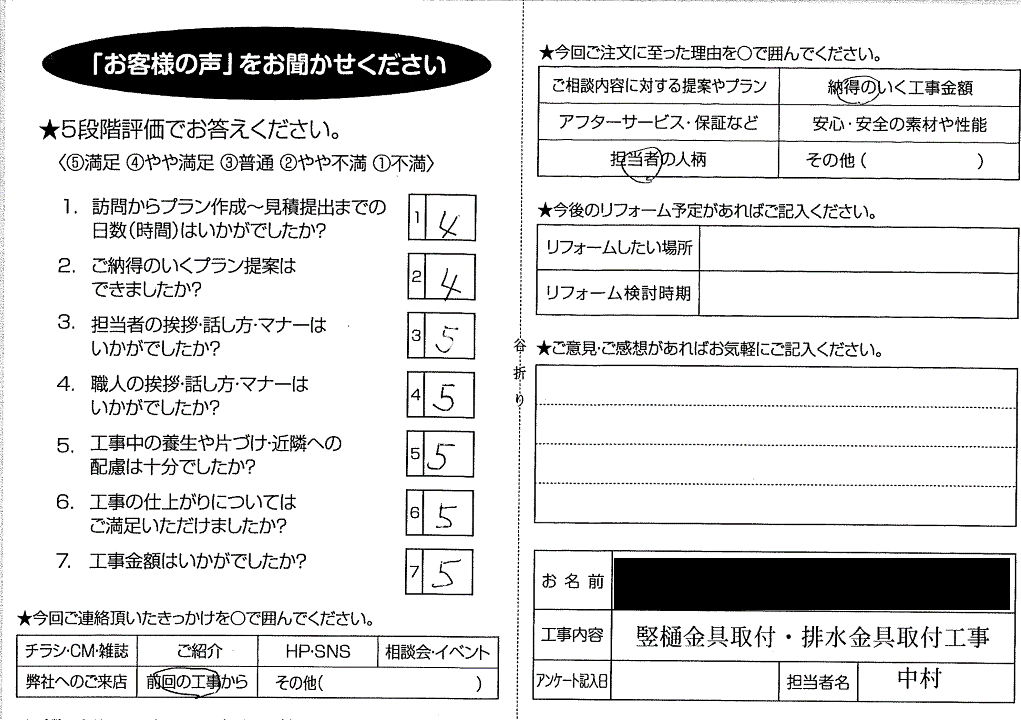 「お客様の声」をお聞かせください
★5段階評価でお答えください。
〈⑤満足 ④やや満足 ③普通 ②やや不満 ①不満〉
1. 訪問からプラン作成～見積提出までの
日数(時間)はいかがでしたか?
1 4
2. ご納得のいくプラン提案は
できましたか?
2 4
3. 担当者の挨拶・話し方・マナーは
いかがでしたか?
3 5
4. 職人の挨拶・話し方・マナーは
いかがでしたか?
4 5
5. 工事中の養生や片づけ・近隣への
配慮は十分でしたか?
5 5
6. 工事の仕上がりについては
ご満足いただけましたか?
6 5
7. 工事金額はいかがでしたか?
7 5
★今回ご連絡頂いたきっかけを○で囲んでください。
チラシ・CM・雑誌 ご紹介 HP・SNS 相談会・イベント
弊社へのご来店 前回の工事から その他( )
谷折り
★今回ご注文に至った理由を○で囲んでください。
ご相談内容に対する提案やプラン 納得のいく工事金額
アフターサービス・保証など 安心・安全の素材や性能
担当者の人柄 その他( )
★今後のリフォーム予定があればご記入ください。
リフォームしたい場所
リフォーム検討時期
★ご意見・ご感想があればお気軽にご記入ください。
お名前
工事内容 竪樋金具取付・排水金具取付工事
アンケート記入日 担当者名 中村